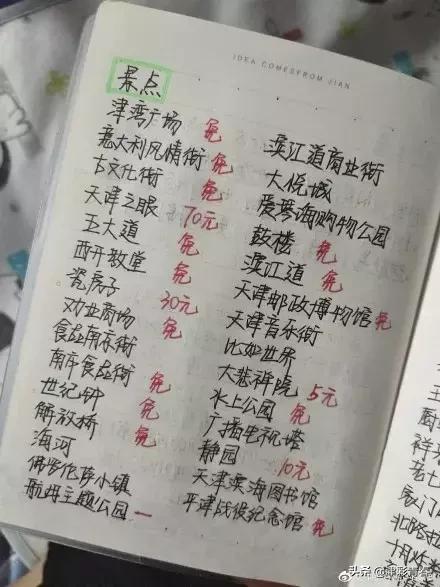 IDEA COMESFROM JIAN
景点
津湾广场 免
意大利风情街 免
古文化街 免
天津之眼 70元
五大道 免
西开教堂 免
瓷房子 30元
劝业商场 免
食品南东街
南市食品街 免
世纪钟 免
解放桥 免
海河
佛罗伦萨小镇
航母主题公园 一
滨江道商业街
大悦城
爱琴海购物公园
鼓楼 免
滨江道 免
天津邮政博物馆 免
天津音乐街
比如世界
大悲禅院 5元
水上公园 免
广播电视塔
静园 10元
天津滨海图书馆
平津战役纪念馆 免
头条 @津彩青年